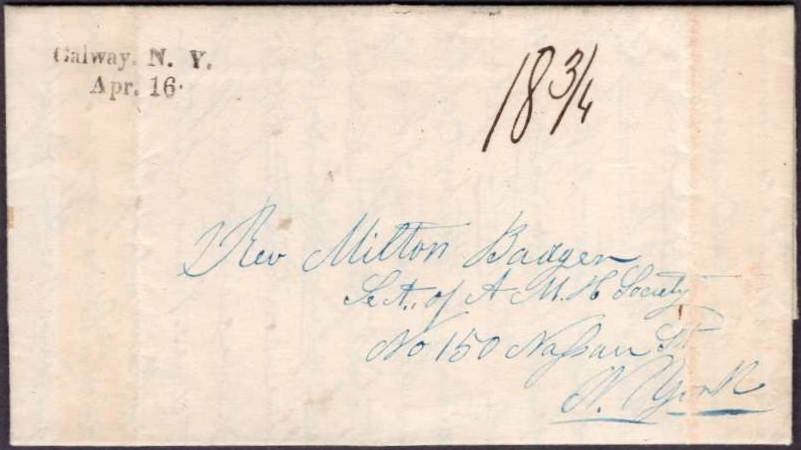 Galway. N. Y.
Apr. 16.
18 3/4
Rev Milton Badger
Sect. of A M. H Society
No 150 Nassau St
N. York